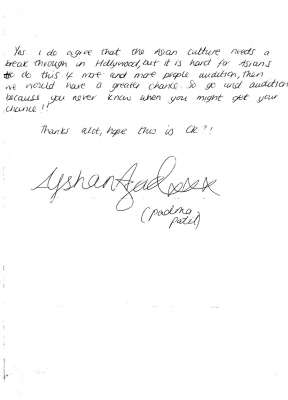 Yes I do agree that the Asian culture needs a
break through in Hollywood, but it is hard for Asians
to do this if more and more people audition, then
we would have a greater chance. So go and audition
because you never know when you might get your
chance!
Thanks alot, hope this is Ok?!
Afshan Azad xxxx
(padma
patil)